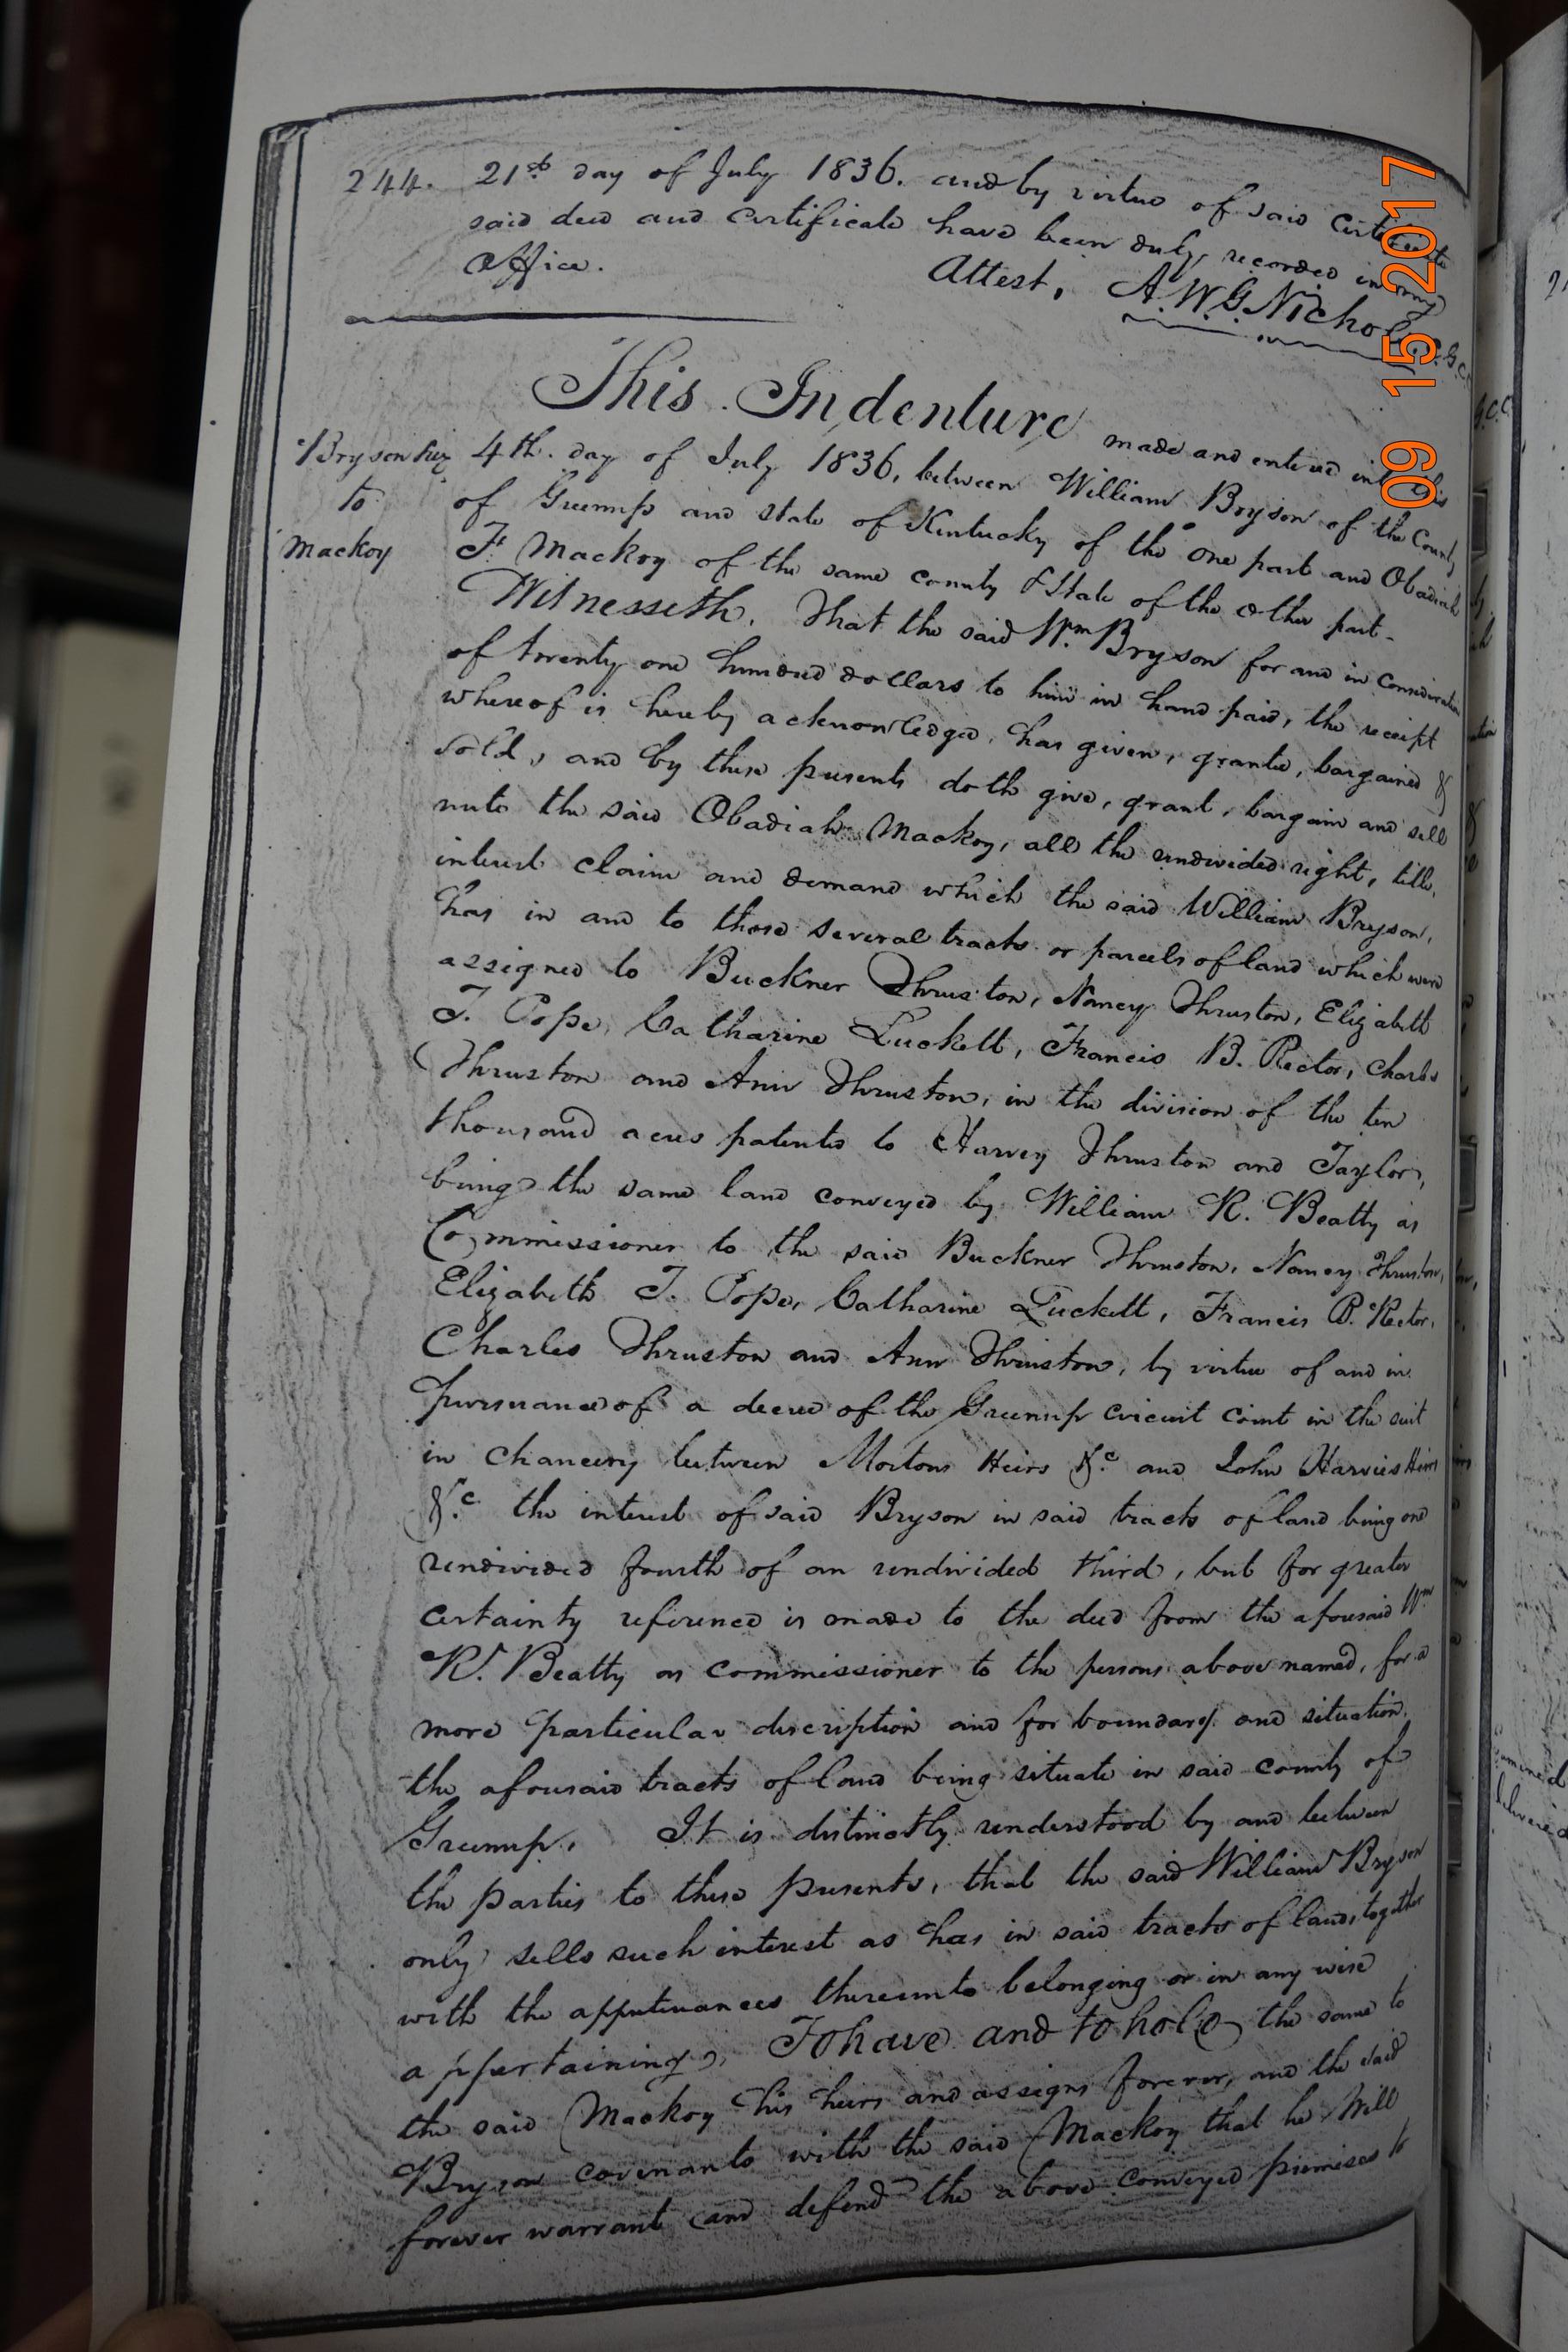 244. 21st day of July 1836. and by virtue of said Certificate
said deed and certificate have been duly recorded in my
Office.
Attest, A. W. G. Nichols C.G.C.C.
This Indenture made and entered into this
4th. day of July 1836, between William Bryson of the County
of Greenup and state of Kentucky of the one part and Obadiah
F. Mackoy of the same county & State of the other part-
Bryson
to
Mackoy
Witnesseth. That the said Wm Bryson for and in consideration
of twenty one hundred dollars to him in hand paid, the receipt
whereof is hereby acknowledged, has given, granted, bargained &
sold, and by these presents doth give, grant, bargain and sell
unto the said Obadiah Mackoy, all the undivided right, title,
interest claim and demand which the said William Bryson,
has in and to those several tracts or parcels of land which were
assigned to Buckner Thruston, Nancy Thruston, Elizabeth
T. Pope, Catharine Luckett, Francis B. Rector, Charles
Thruston and Ann Thruston, in the division of the ten
thousand acres patented to Harvey Thruston and Taylor,
being the same land conveyed by William R. Beatty as
Commissioner to the said Buckner Thruston, Nancy Thruston,
Elizabeth T. Pope, Catharine Luckett, Francis B. Rector,
Charles Thruston and Ann Thruston, by virtue of and in
pursuance of a decree of the Greenup circuit court in the suit
in chancery between Mortons Heirs &c and John Harvies Heirs
&c. the interest of said Bryson in said tracts of land being one
undivided fourth of an undivided third, but for greater
certainty reference is made to the deed from the aforesaid Wm
R. Beatty as commissioner to the persons above named, for a
more particular discription and for boundary and situation.
the aforesaid tracts of land being situate in said county of
Greenup. It is distinctly understood by and between
the parties to these presents, that the said William Bryson
only sells such interest as has in said tracts of land, together
with the appurtenances thereunto belonging or in any wise
appertaining, To have and to hold the same to
the said Mackoy his heirs and assigns forever, and the said
Bryson covenants with the said Mackoy that he Will
forever warrant and defend the above conveyed premises to
09 15 2017